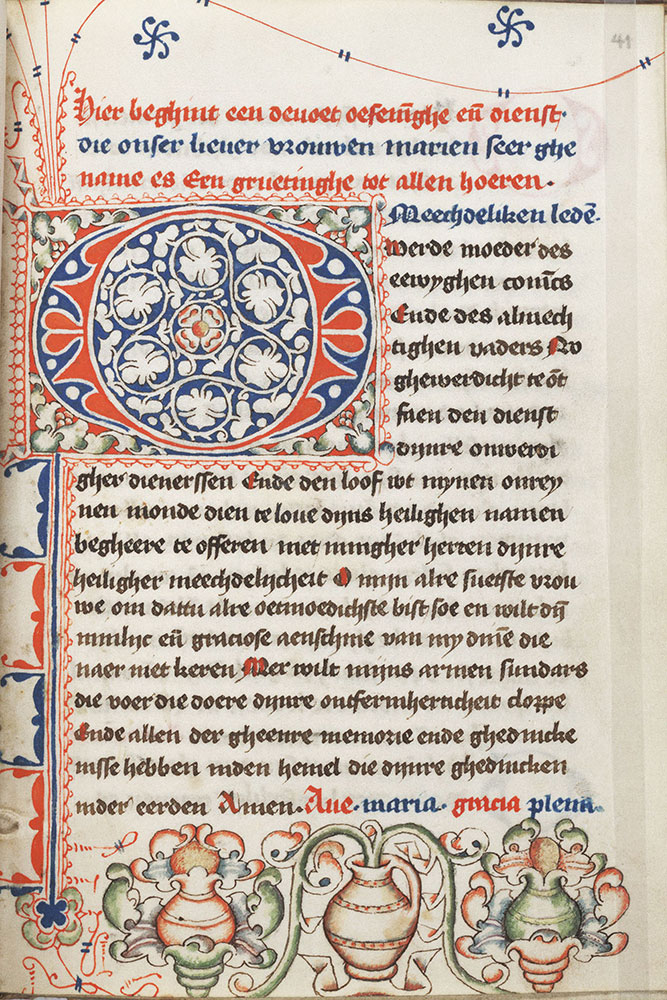 41
Hier beghint een deuoet oefeninghe eñ dienst.
die onser lieuer vrouwen marien seer ghe
name es Een gruetinghe tot allen hoeren.
Meechdeliken ledē.
O
Werde moeder des
eewyghen conincs
Ende des almech
tighen vaders Nv
ghewerdicht te ōt
faen den dienst
dijnre onwerdi
gher dienerssen Ende den loof wt mynen onrey
nen monde dien te loue dijns heilighen namen
begheere te offeren met ynnigher herten dijnre
heiligher meechdelijcheit O mijn alre suetste vrou
we om dattu alre oetmoedichste bist soe en wilt dijn
minlijc eñ graciose aenschine van my
die
naer niet keren Mer wilt mijns armen sundars
die voer die doere dijnre ontfermherticheit cloppe
Ende allen der gheenre memorie ende ghedincke
nisse hebben inden hemel die dijnre ghedincken
inder eerden Amen. Aue. maria. gracia plena.